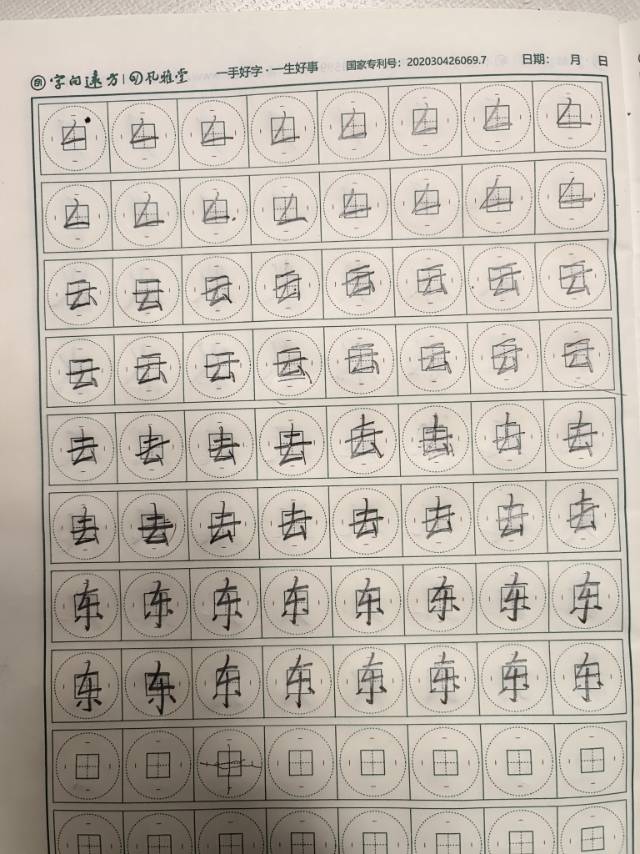 字向遠方 风雅堂 一手好字·一生好事 国家专利号:202030426069.7 日期: 月 日
云 云 云 云 云 云 云 云
云 云 云 云 云 云 云 云
去 去 去 去 去 去 去 去
去 去 去 去 去 去 去 去
东 东 东 东 东 东 东 东
东 东 东 东 东 东 东 东